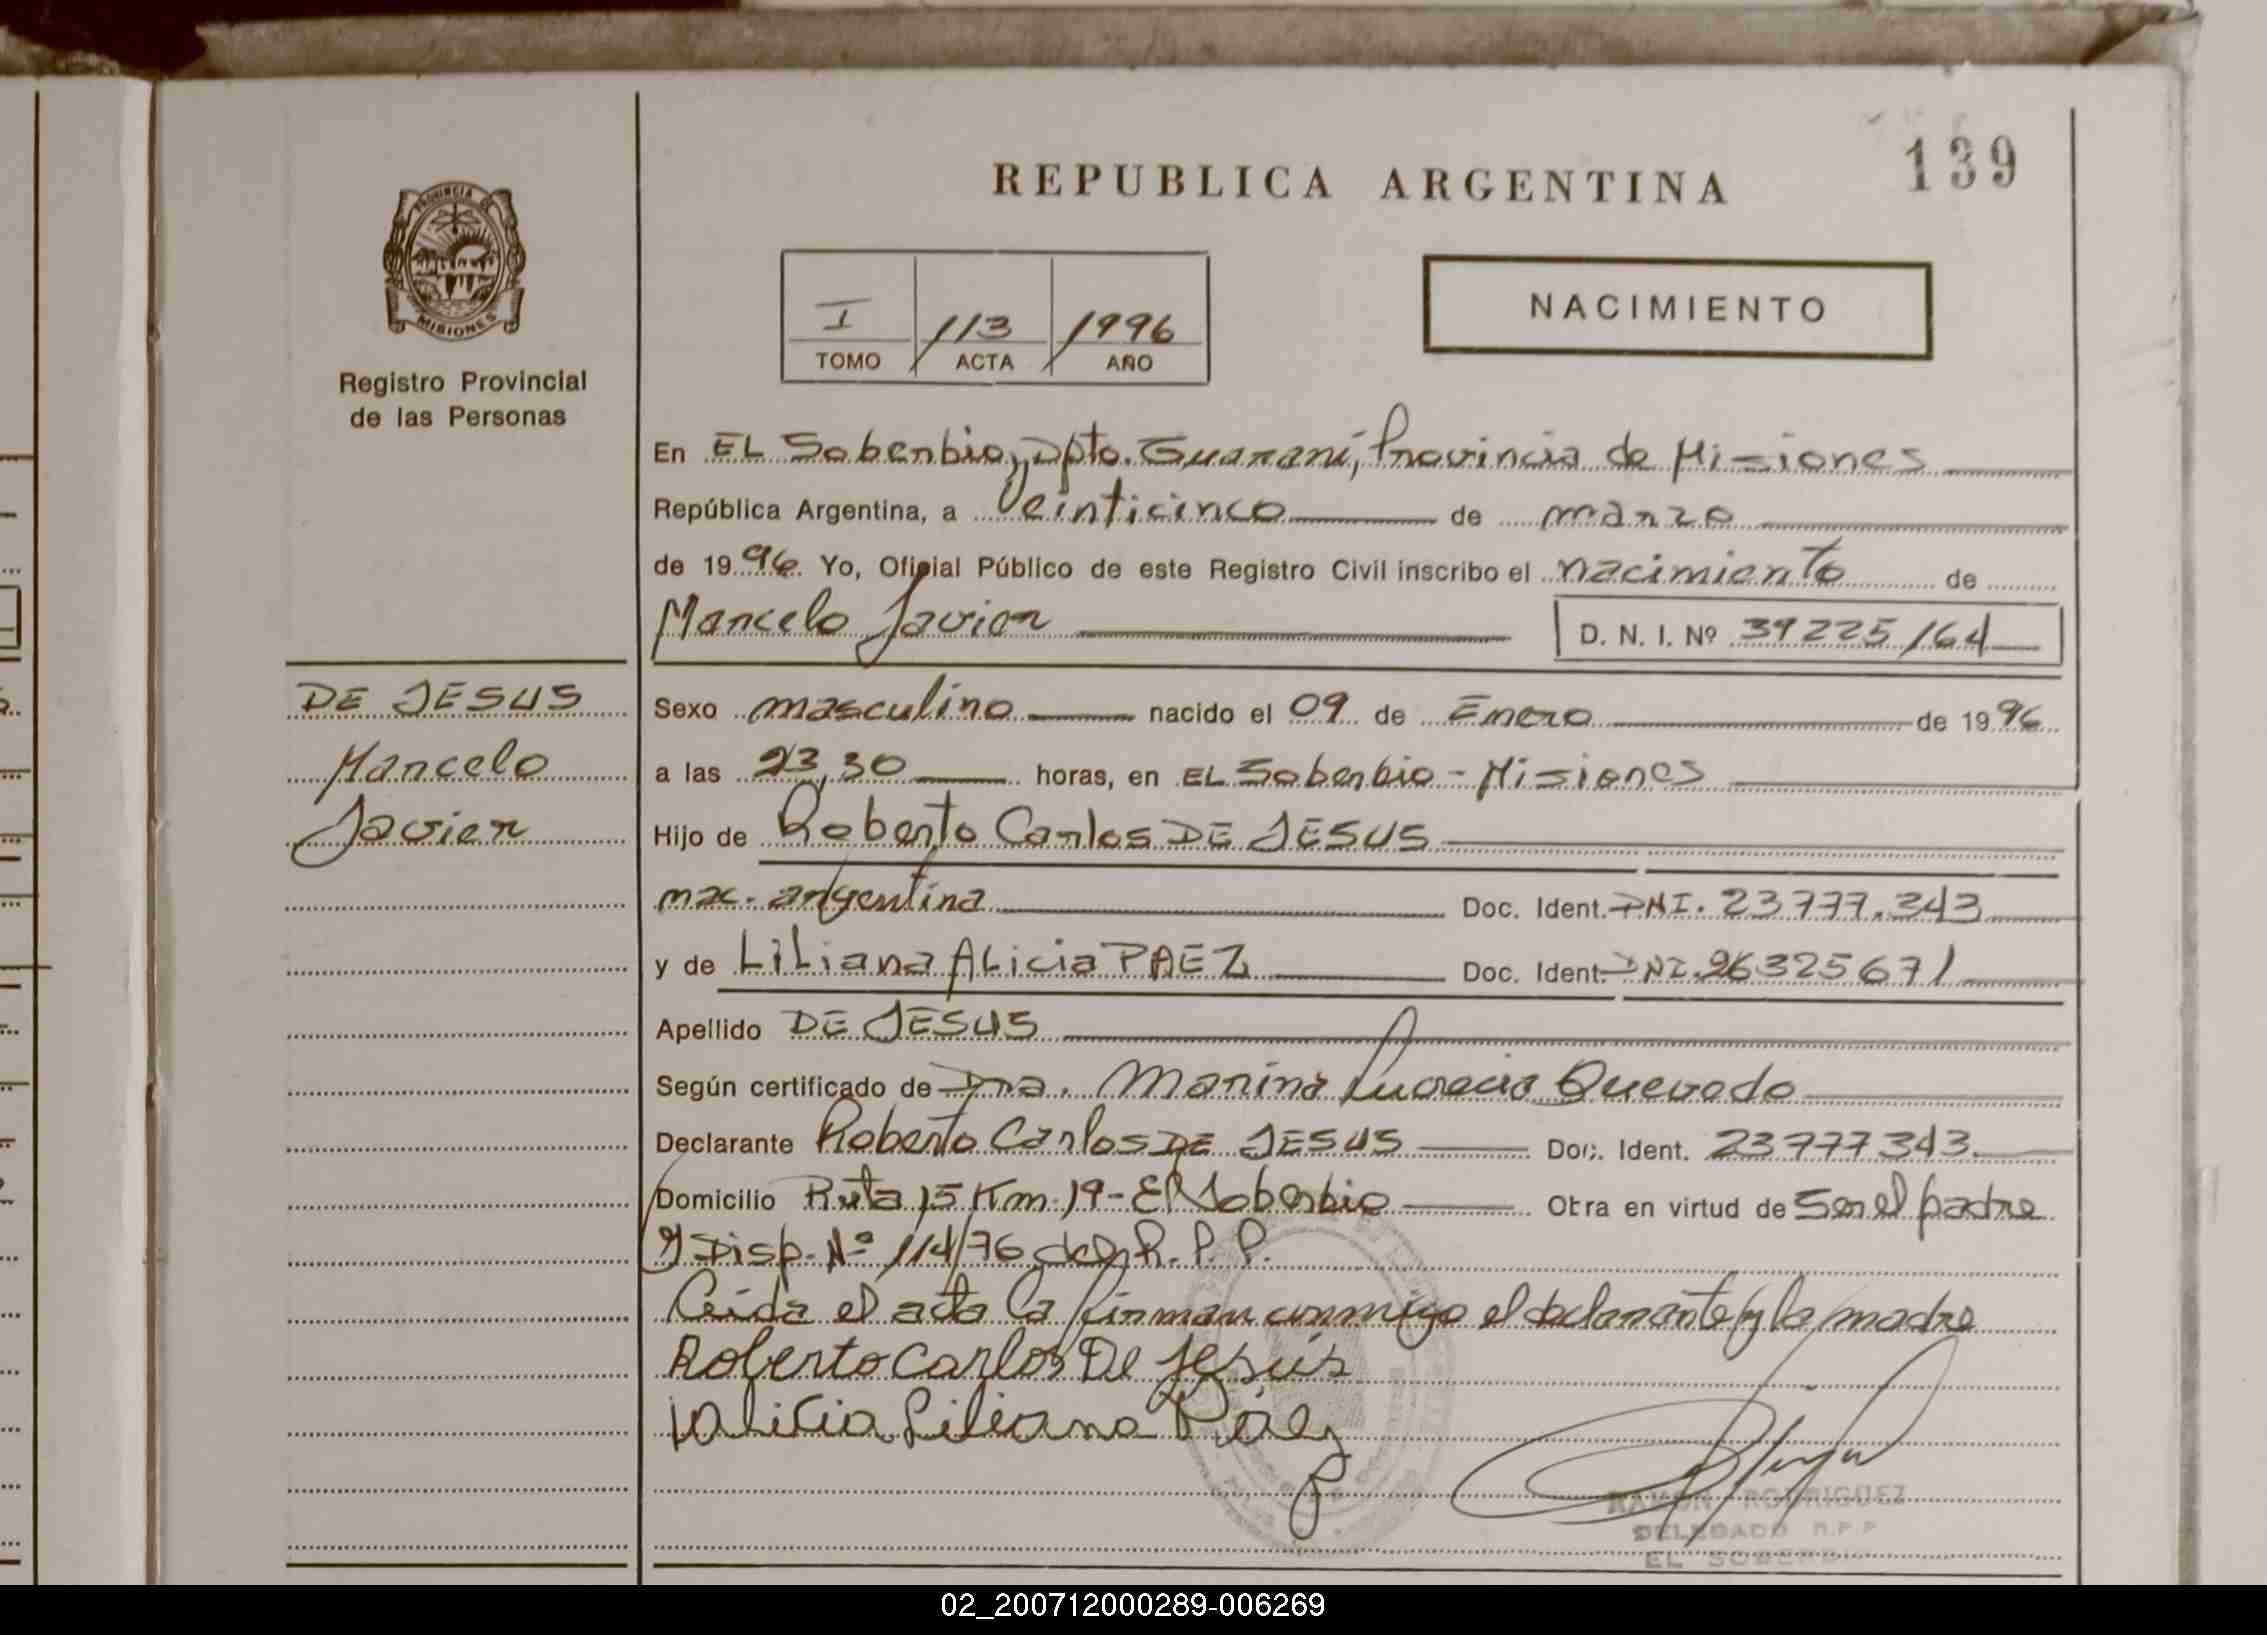 139
REPUBLICA ARGENTINA
PROVINCIA DE
MISIONES
Registro Provincial
de las Personas
I 113 1996
TOMO ACTA AÑO
NACIMIENTO
En EL Soberbio, Dpto. Guaraní, Provincia de Misiones
República Argentina, a Veinticinco de marzo
de 1996 Yo, Oficial Público de este Registro Civil inscribo el nacimiento de
Marcelo Javier D. N. I. Nº 39225164
DE JESUS
Marcelo
Javier
Sexo masculino nacido el 09 de Enero de 1996
a las 23,30 horas, en EL Soberbio - Misiones
Hijo de Roberto Carlos DE JESUS
nac. argentina Doc. Ident. DNI. 23777.343
y de LiLiana ALicia PAEZ Doc. Ident. DNI. 26325671
Apellido DE JESUS
Según certificado de Dra. Marina Lucrecia Quevedo
Declarante Roberto Carlos DE JESUS Doc. Ident. 23777343
Domicilio Ruta 15 Km. 19 - El Soberbio Obra en virtud de Ser el padre
y Disp. Nº 114/76 del R. P. P.
Leída el acta la firman conmigo el declarante y la madre
Roberto Carlos De Jesús
Alicia Liliana Páez
RAMON RODRIGUEZ
DELEGADO R.P.P
EL SOBERBIO
02_200712000289-006269